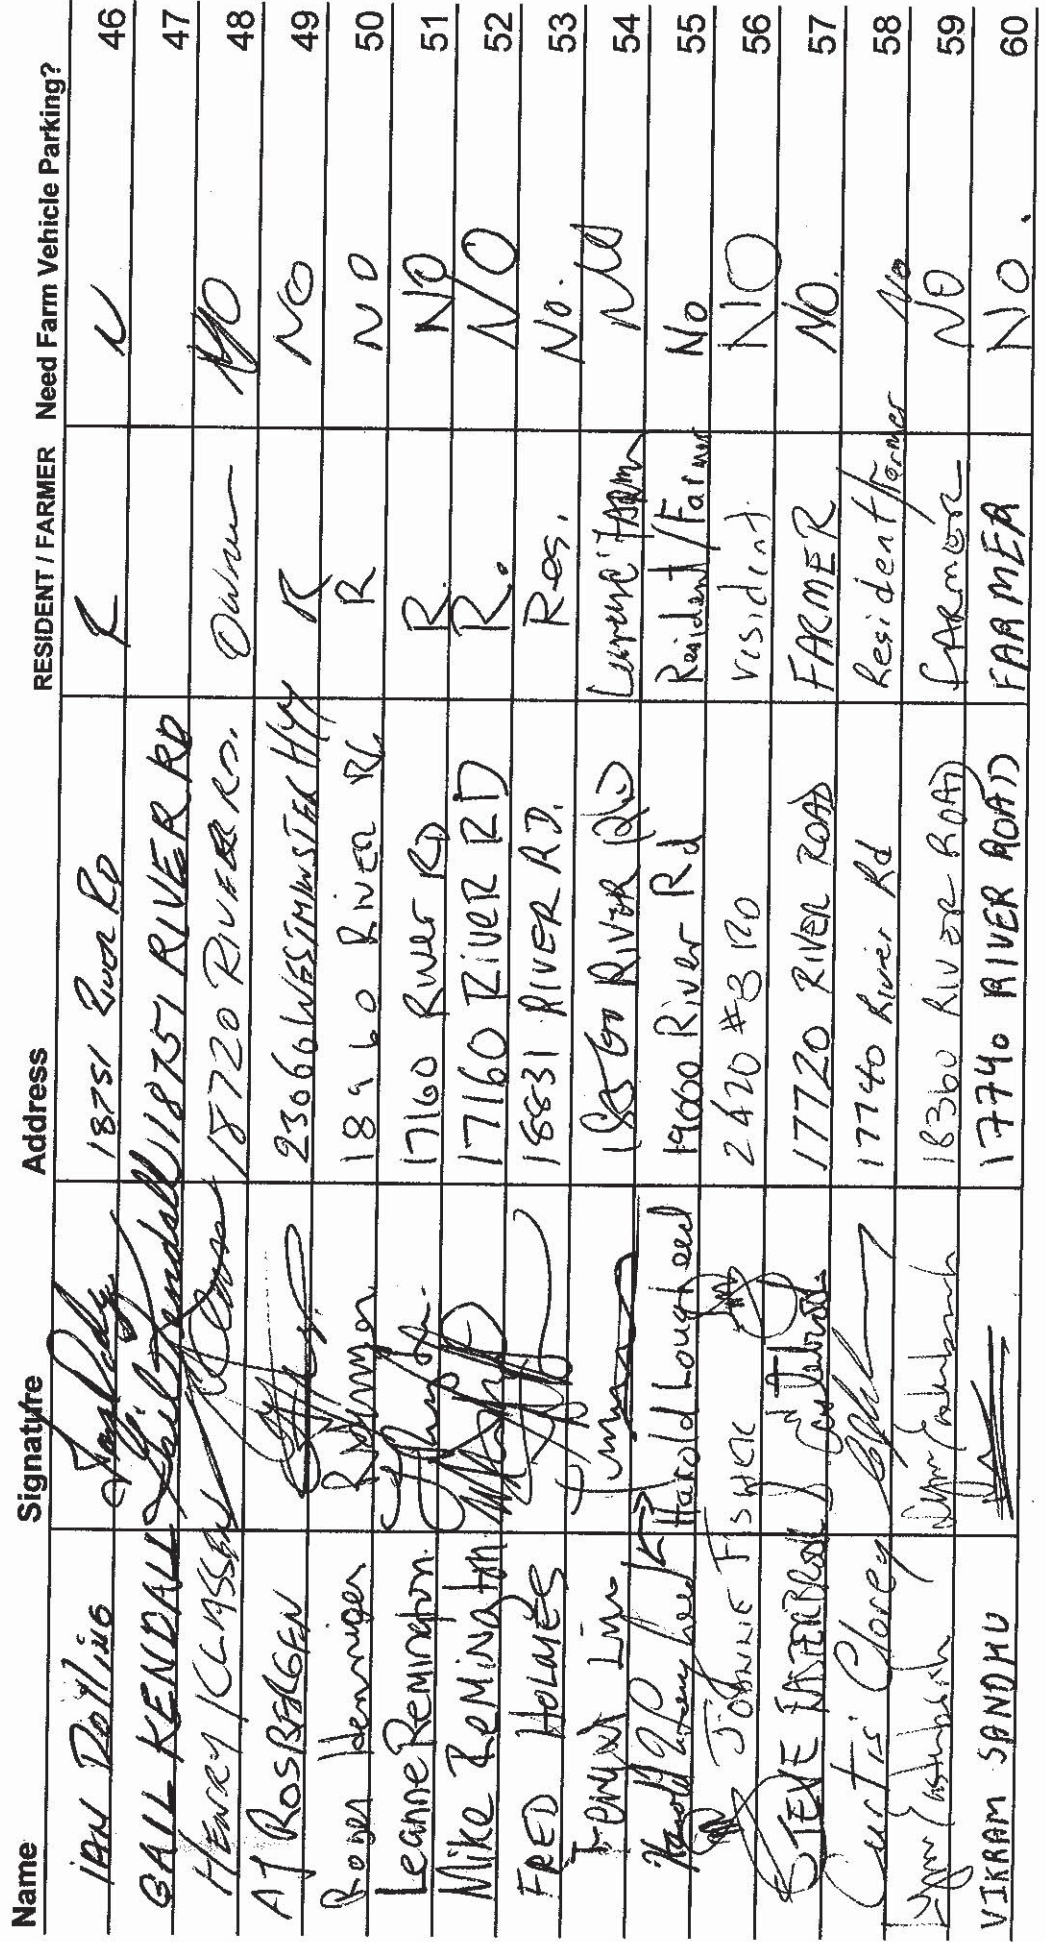 Name Signature Address RESIDENT / FARMER Need Farm Vehicle Parking?
IAN Dolling 18751 River RD R N 46
GAIL KENDALL Gail Kendall 18751 RIVER RD 47
HENRY KLASSEN 18720 RIVER RD. Owner NO 48
AJ ROSBERGEN 23066 WESTMINSTER Hyy R No 49
Roger Henninger 18960 RIVER Rd R NO 50
Leanne Remington. 17160 River RD R. NO 51
Mike Remington. 17160 RIVER RD R. NO 52
FRED HOLMES 18831 RIVER RD. Res. No. 53
RIVER 54
Harold Lougheed 19660 River Rd Resident/Farmer No 55
JOHNNE FISHER 2420 #3 RD resident NO 56
STEVE EASTERBROOK 17720 RIVER ROAD FARMER NO. 57
Curtis Clorey 17740 River Rd Resident/Farmer No 58
18360 River ROAD FArmer NO 59
VIKRAM SANDHU 17740 RIVER ROAD FARMER No. 60